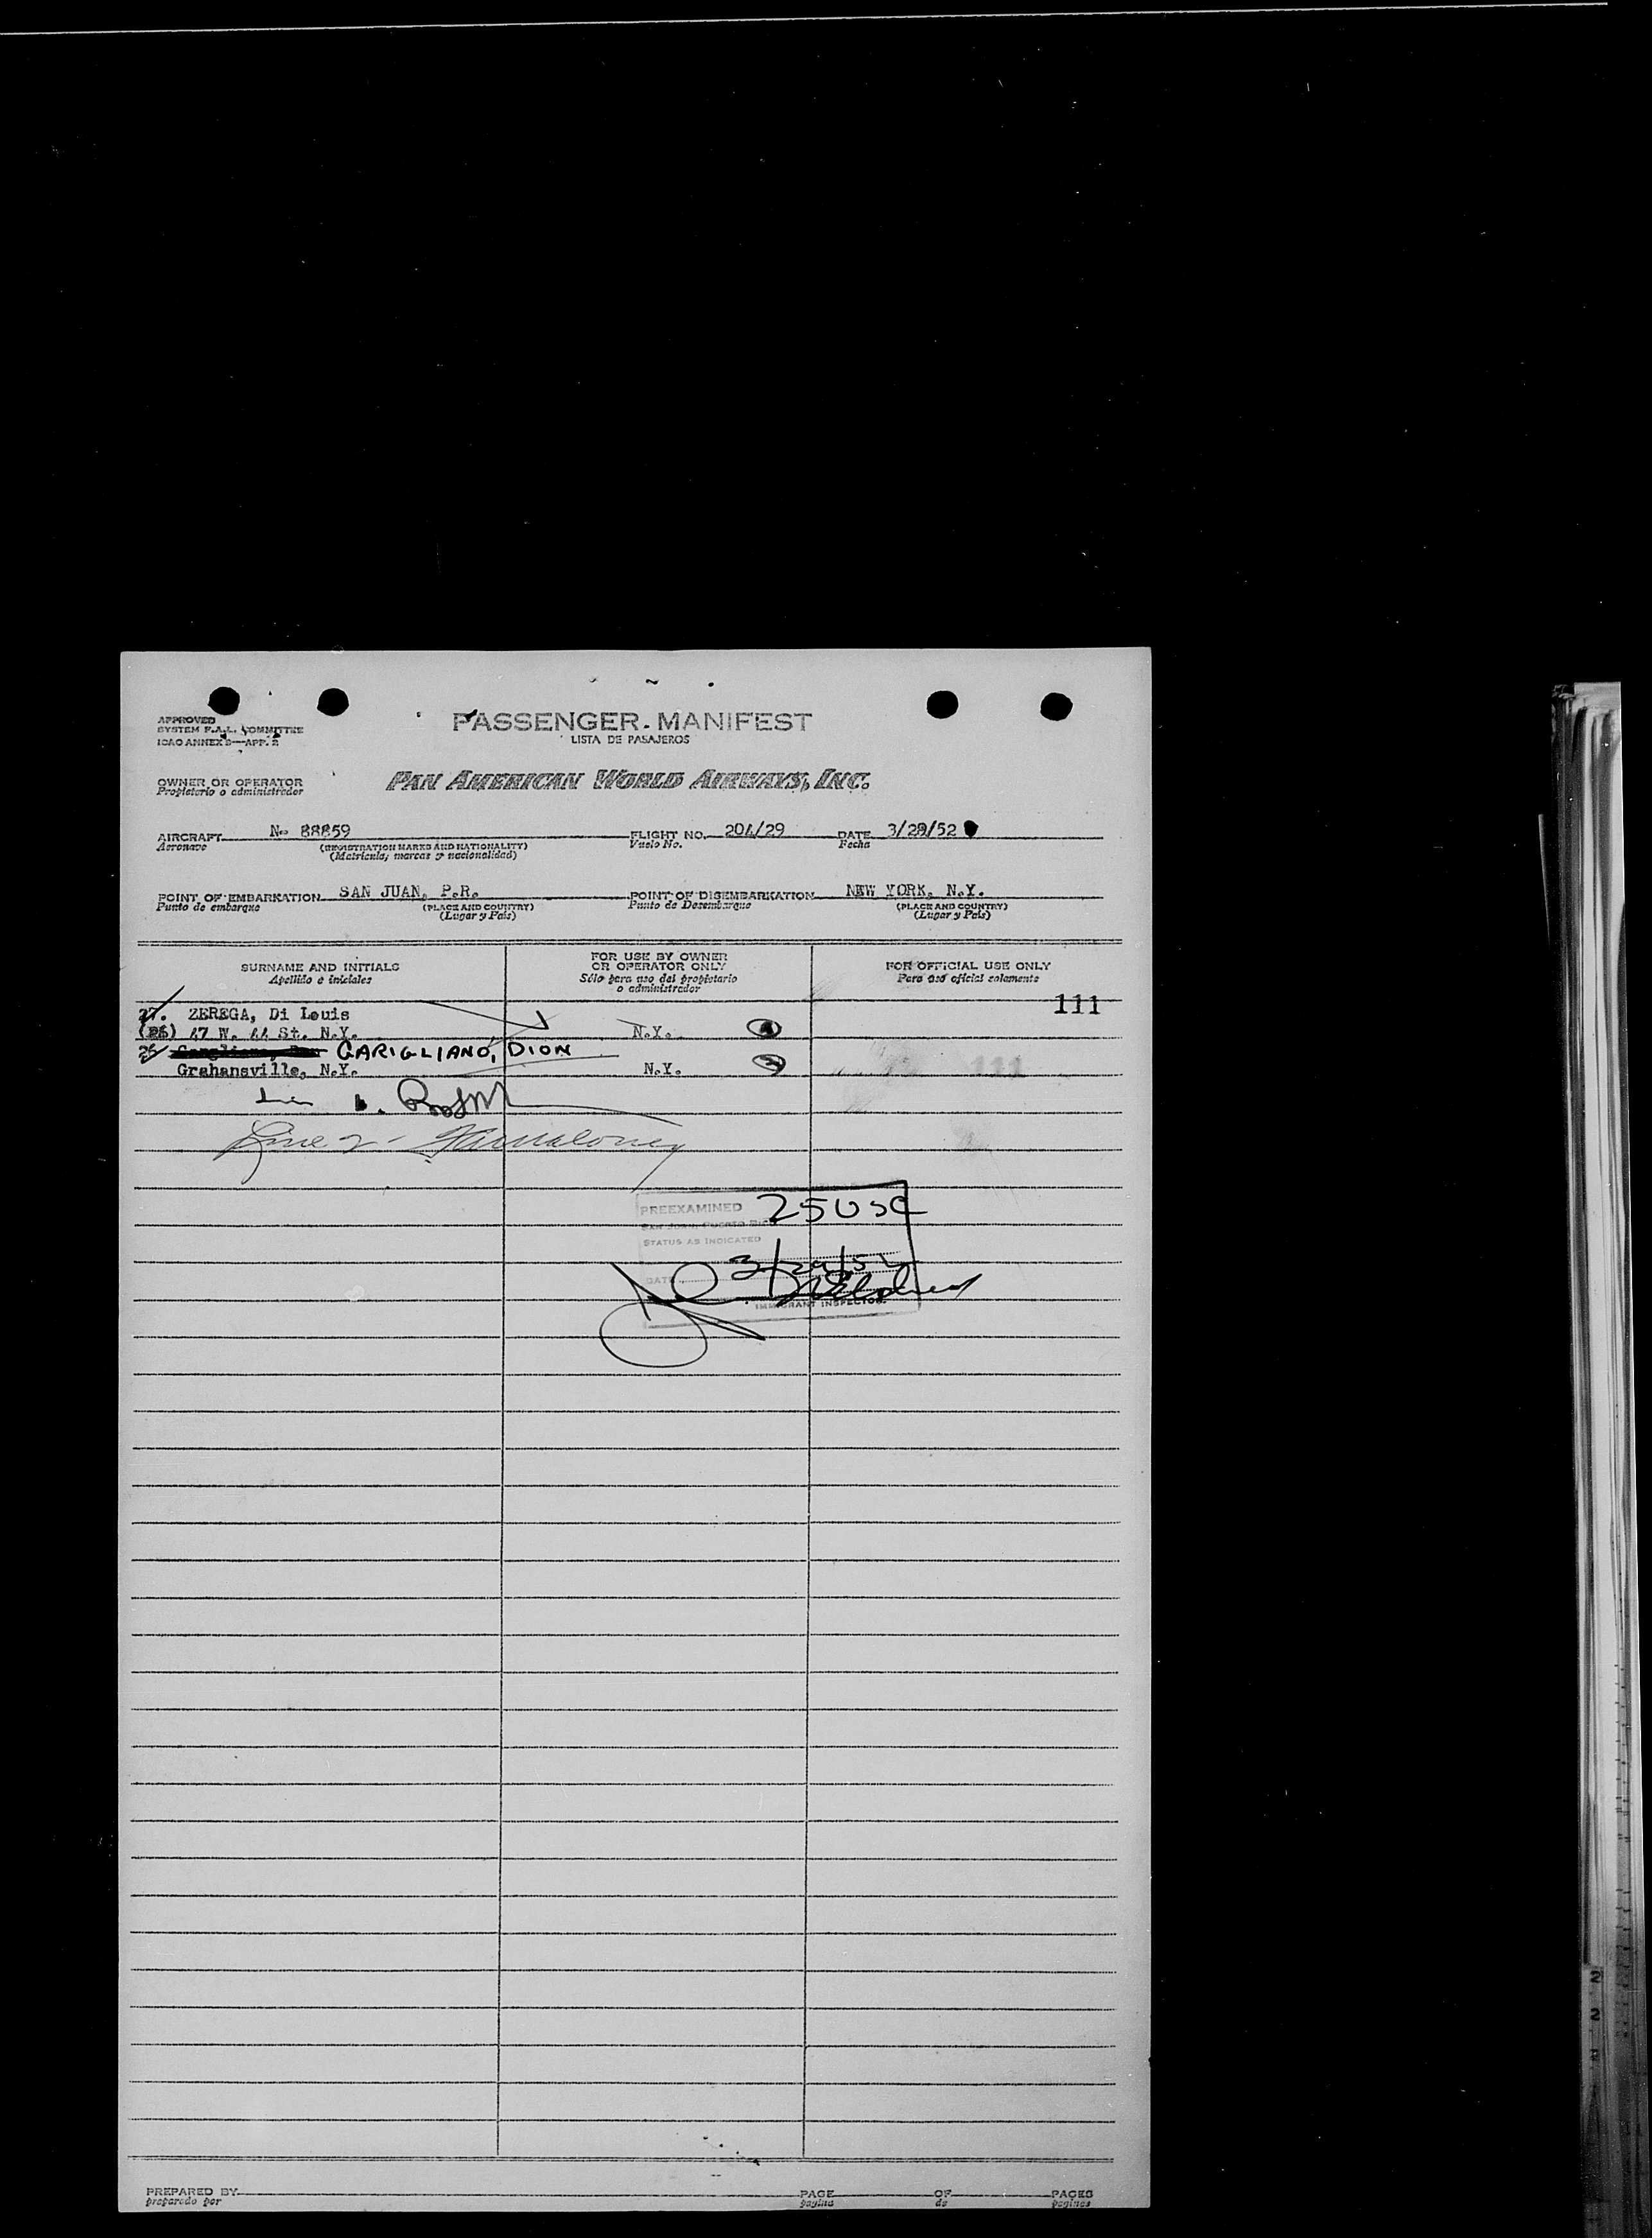 APPROVED
SYSTEM F.A.L. COMMITTEE
ICAO ANNEX 9—APP. 2
PASSENGER MANIFEST
LISTA DE PASAJEROS
OWNER OR OPERATOR
Propietario o administrador
PAN AMERICAN WORLD AIRWAYS, INC.
AIRCRAFT N- 88859 FLIGHT NO. 204/29 DATE 3/29/52
Aeronave (REGISTRATION MARKS AND NATIONALITY) Vuelo No. Fecha
(Matrícula, marcas y nacionalidad)
POINT OF EMBARKATION SAN JUAN, P.R. POINT OF DISEMBARKATION NEW YORK, N.Y.
Punto de embarque (PLACE AND COUNTRY) Punto de Desembarque (PLACE AND COUNTRY)
(Lugar y País) (Lugar y País)
SURNAME AND INITIALS FOR USE BY OWNER OR OPERATOR ONLY FOR OFFICIAL USE ONLY
Apellido e iniciales Sólo para uso del propietario o administrador Para uso oficial solamente
111
27. ZEREGA, Di Louis
47 W. 44 St. N.Y. N.Y.
GARIGLIANO, DION
Grahansville, N.Y. N.Y.
Line 2 -
PREEXAMINED 25 USC
SAN JUAN, PUERTO RICO
STATUS AS INDICATED
DATE 3/29/52
IMMIGRANT INSPECTOR
PREPARED BY PAGE OF PAGES
preparado por página de páginas